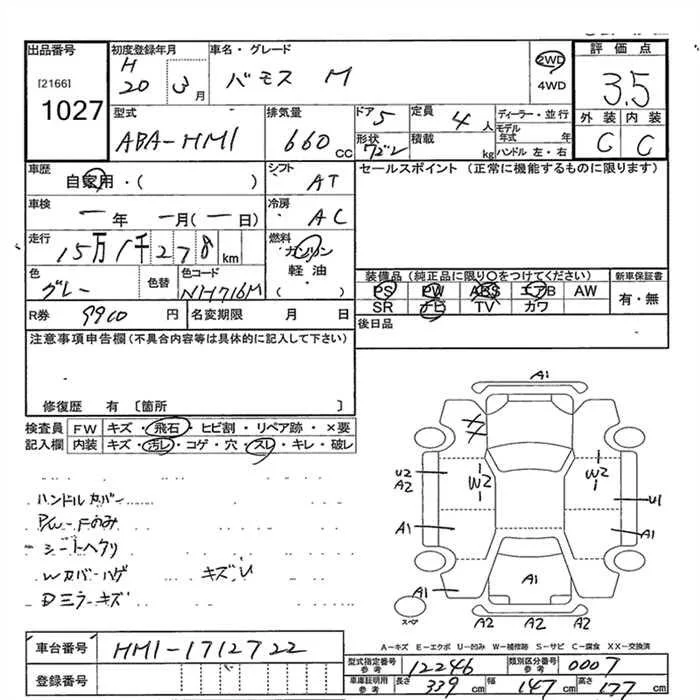 出品番号 初度登録年月 車名・グレード 評価点
[2166] H 20 3月 バモス M 2WD 4WD 3.5
1027
型式 排気量 ドア 5 定員 4人 ディーラー・並行 外装 内装
ABA-HM1 660 CC 形状 ワゴン 積載 kg モデル年式 年 ハンドル 左・右 C C
車歴 自家用・( ) シフト AT セールスポイント (正常に機能するものに限ります)
車検 一年 一月(一日) 冷房 AC
走行 15万1千278km 燃料 ガソリン 軽油 ( )
色 グレー 色替 色コード NH716M
装備品 (純正品に限り○をつけてください) 新車保証書
PS PW ABS エアB AW 有・無
SR ナビ TV カワ
R券 9900円 名変期限 月 日 後日品
注意事項申告欄(不具合内容等は具体的に記入して下さい)
修復歴 有 〔箇所 〕
検査員 FW キズ・飛石・ヒビ割・リペア跡・×要
記入欄 内装 キズ・汚レ・コゲ・穴・スレ・キレ・破レ
ハンドルカバー
PW-Fのみ
シートヘタリ
Wカバーハゲ キズU
Dミラーキズ
A1
U2 A2 W2 W2 U1
A1 A1
A1 A1
スペア A2 A2 A2
A-キズ E-エクボ U-凹み W-補修跡 S-サビ C-腐食 XX-交換済
車台番号 HM1-1712722
登録番号
型式指定番号 参考 12246 類別区分番号 参考 0007
車庫証明用 参考 長さ 339cm 幅 147cm 高さ 177cm